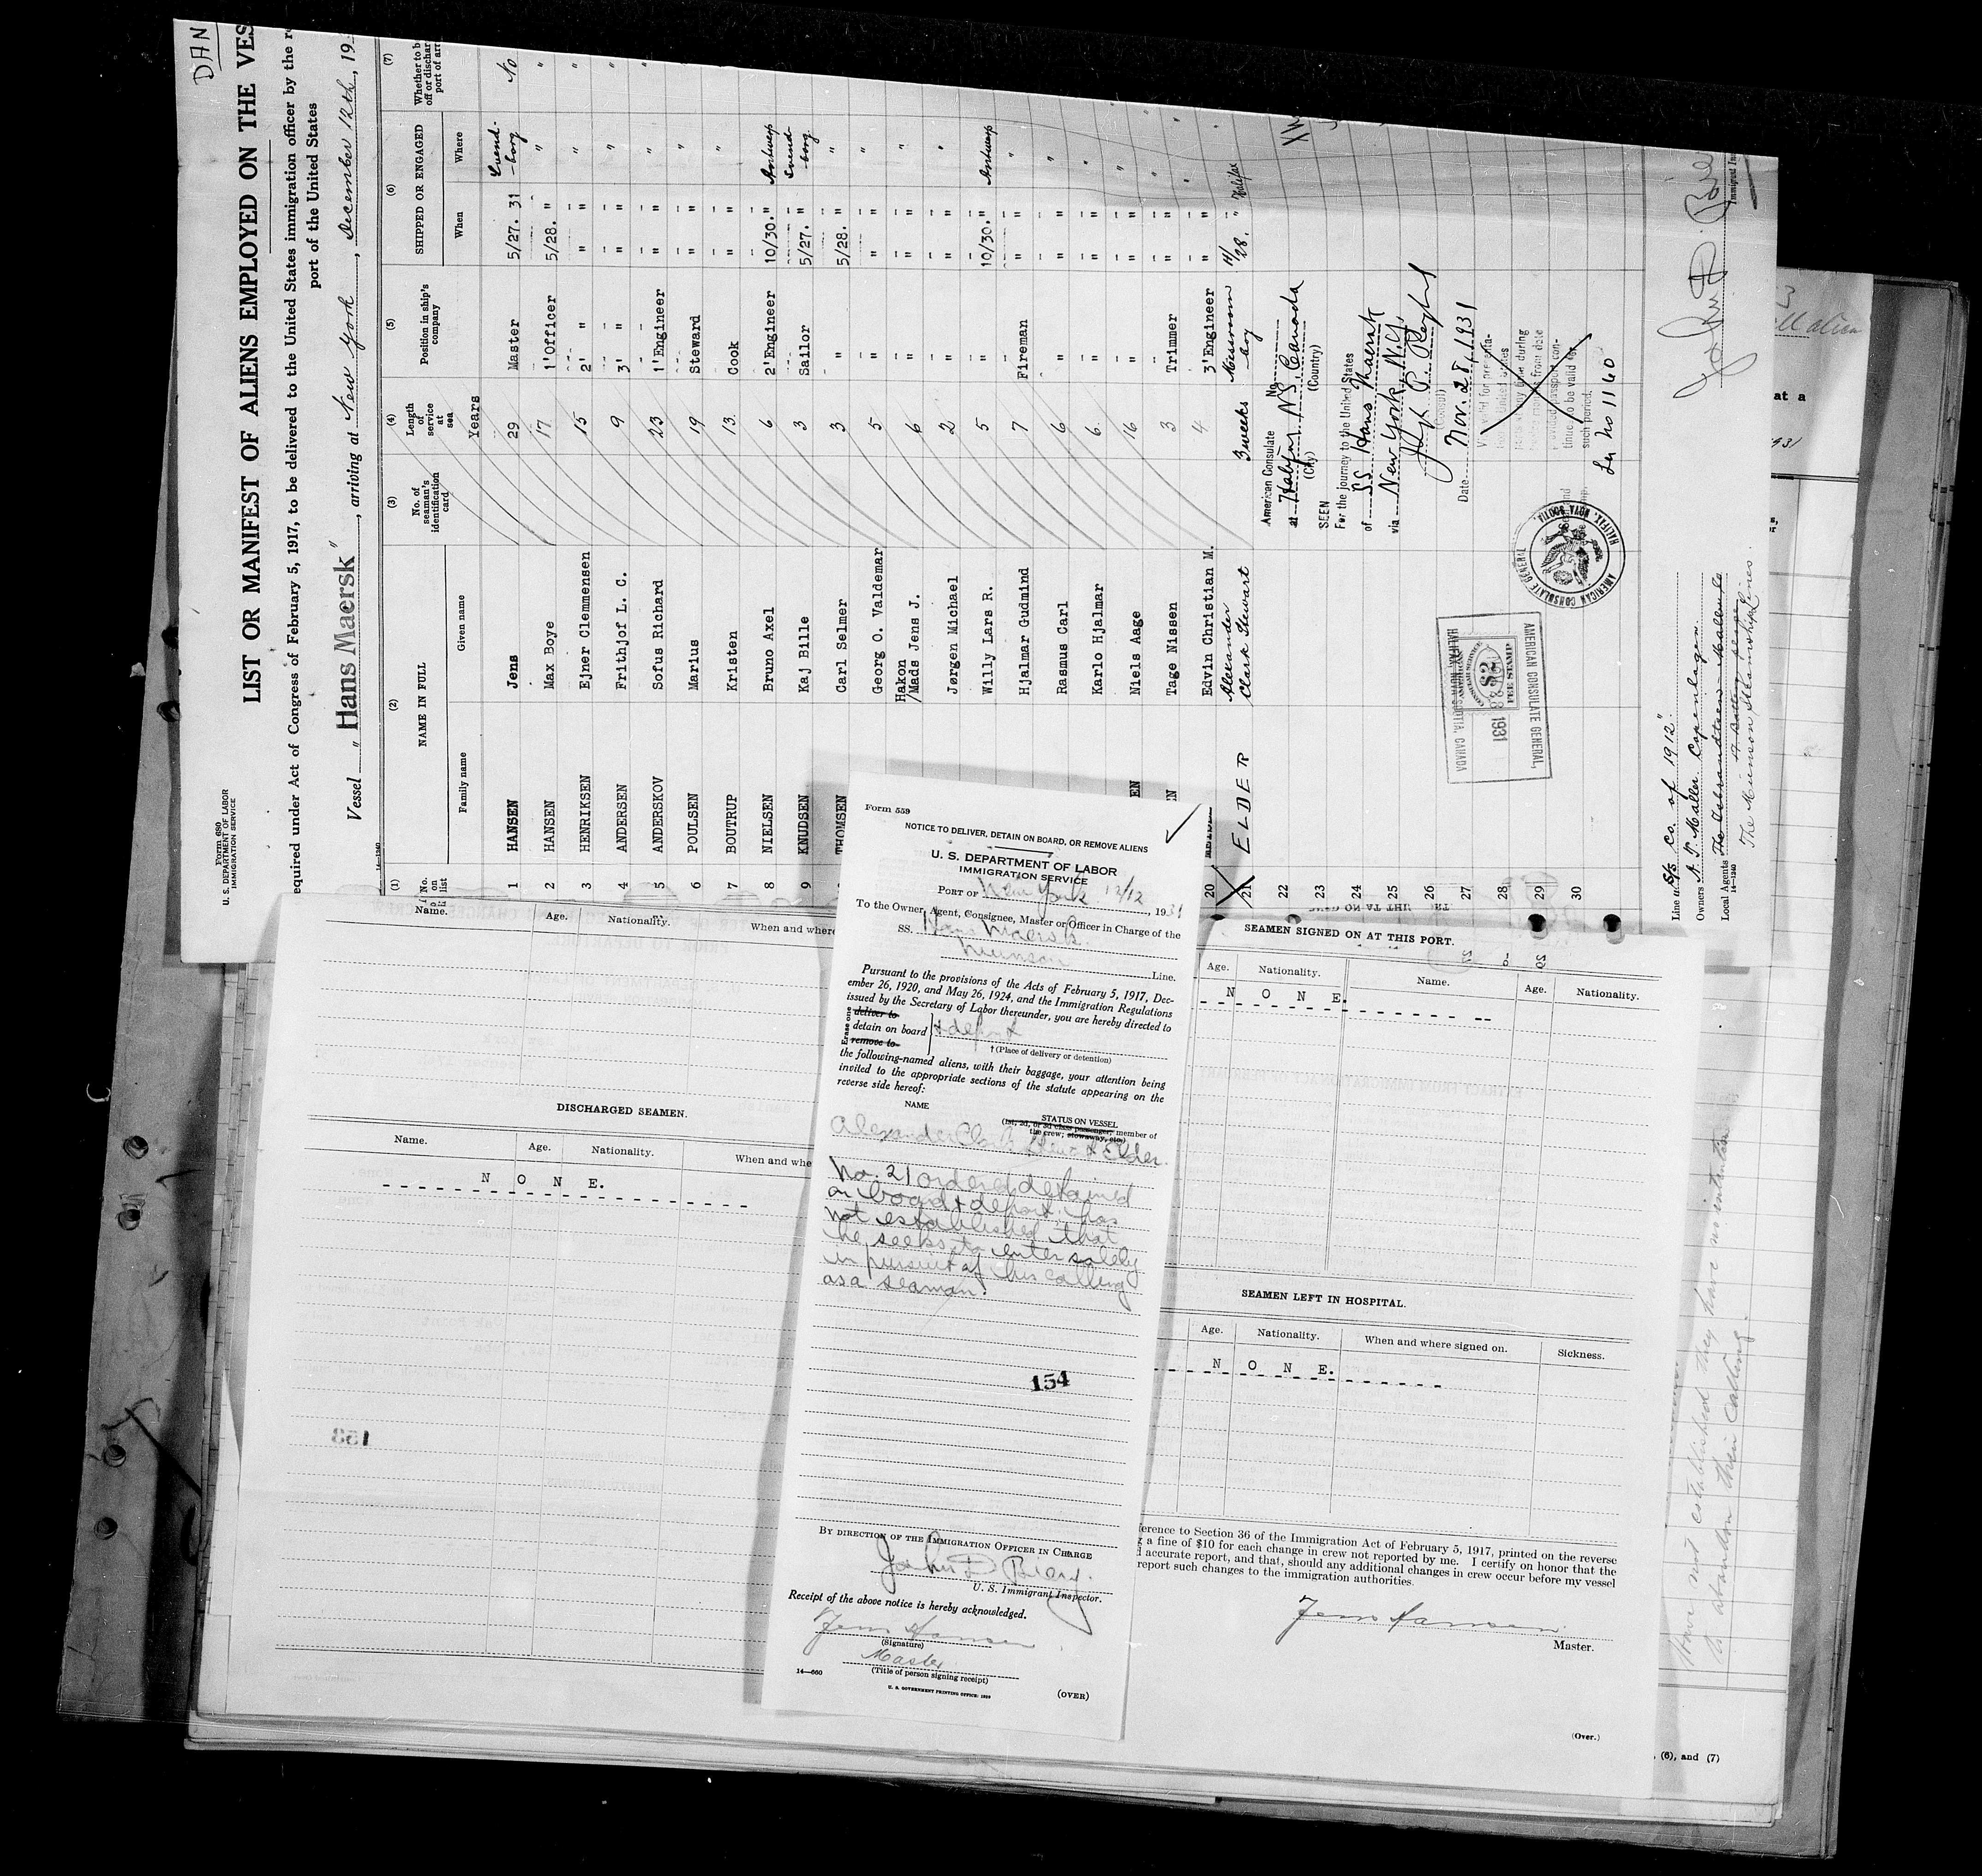 DAN
Form 680
U. S. DEPARTMENT OF LABOR
IMMIGRATION SERVICE
LIST OR MANIFEST OF ALIENS EMPLOYED ON THE VES
equired under Act of Congress of February 5, 1917, to be delivered to the United States immigration officer by the r
port of the United States
Vessel " Hans Maersk ", arriving at New York, December 12th, 19
14-1240
(1) (2) (3) (4) (5) (6) (7)
No. on list
NAME IN FULL
Family name Given name
No. of seaman's identification card
Length of service at sea
Years
Position in ship's company
SHIPPED OR ENGAGED
When Where
Whether to b
off or dischar
port of arr
1 HANSEN Jens 29 Master 5/27. 31 Svend-borg No
2 HANSEN Max Boye 17 1'Officer 5/28. " " "
3 HENRIKSEN Ejner Clemmensen 15 2' " " " " "
4 ANDERSEN Frithjof L. C. 9 3' " " " " "
5 ANDERSKOV Sofus Richard 23 1'Engineer " " " "
6 POULSEN Marius 19 Steward " " "
7 BOUTRUP Kristen 13 Cook " " "
8 NIELSEN Bruno Axel 6 2'Engineer 10/30. " Antwerp
9 KNUDSEN Kaj Bille 3 Sailor 5/27. " Svend-borg
THOMSEN Carl Selmer 3 " 5/28. " "
Georg O. Valdemar 5 " " " "
Hakon /Mads Jens J. 6 " " " "
Jørgen Michael 2 " " " "
Willy Lars R. 5 " 10/30. " Antwerp
Hjalmar Gudmind 7 Fireman " " "
Rasmus Carl 6 " " " "
Karlo Hjalmar 6 " " " "
EN Niels Aage 16 " " " "
EN Tage Nissen 3 Trimmer " " "
20 Edvin Christian M. 4 3'Engineer " " "
21 ELDER Alexander Clark Stewart 3 weeks Messroom boy 11/28. " Halifax
22
23
24
25
26
27
28
29
30
American Consulate No.
at Halifax N.S. Canada
(City) (Country)
SEEN
For the journey to the United States
of SS Hans Maersk
via New York N.Y.
(Consul)
Date Nov. 28, 1931
such period.
Ser no 1160
AMERICAN CONSULATE GENERAL
HALIFAX, NOVA SCOTIA.
AMERICAN CONSULATE GENERAL,
$2
FEE STAMP
1931
HALIFAX, NOVA SCOTIA, CANADA
Line S/S Co. of 1912".
Owners A. P. Møller Copenhagen.
Local Agents
14-1240
The Munson Steamship Lines.
Immigrant In
Form 559
NOTICE TO DELIVER, DETAIN ON BOARD, OR REMOVE ALIENS
U. S. DEPARTMENT OF LABOR
IMMIGRATION SERVICE
PORT OF New York 12/12, 1931
To the Owner, Agent, Consignee, Master or Officer in Charge of the
SS. Hans Maersk.
Munson Line.
Pursuant to the provisions of the Acts of February 5, 1917, Dec-
ember 26, 1920, and May 26, 1924, and the Immigration Regulations
issued by the Secretary of Labor thereunder, you are hereby directed to
Erase one
deliver to
detain on board & deport
remove to
†(Place of delivery or detention)
the following-named aliens, with their baggage, your attention being
invited to the appropriate sections of the statute appearing on the
reverse side hereof:
NAME
STATUS ON VESSEL
(1st, 2d, or 3d class passenger, member of
the crew, stowaway, etc.)
Alexander Clark Stewart Elder.
No. 21 ordered detained
on board & deport. has
not established that
he seeks to enter solely
in pursuit of his calling
as a seaman.
154
BY DIRECTION OF THE IMMIGRATION OFFICER IN CHARGE
U. S. Immigrant Inspector.
Receipt of the above notice is hereby acknowledged.
Jens Hansen
(Signature)
Master
(Title of person signing receipt)
14—660
U. S. GOVERNMENT PRINTING OFFICE: 1929
(OVER)
Name. Age. Nationality. When and where
DISCHARGED SEAMEN.
Name. Age. Nationality. When and whe
N O N E.
158
SEAMEN SIGNED ON AT THIS PORT.
Age. Nationality. Name. Age. Nationality.
N O N E.
SEAMEN LEFT IN HOSPITAL.
Age. Nationality. When and where signed on. Sickness.
N O N E.
erence to Section 36 of the Immigration Act of February 5, 1917, printed on the reverse
g a fine of $10 for each change in crew not reported by me. I certify on honor that the
d accurate report, and that, should any additional changes in crew occur before my vessel
report such changes to the immigration authorities.
Jens Hansen
Master.
(Over.)
have not established they have no intention
to abandon their calling.
at a
1931
, (6), and (7)